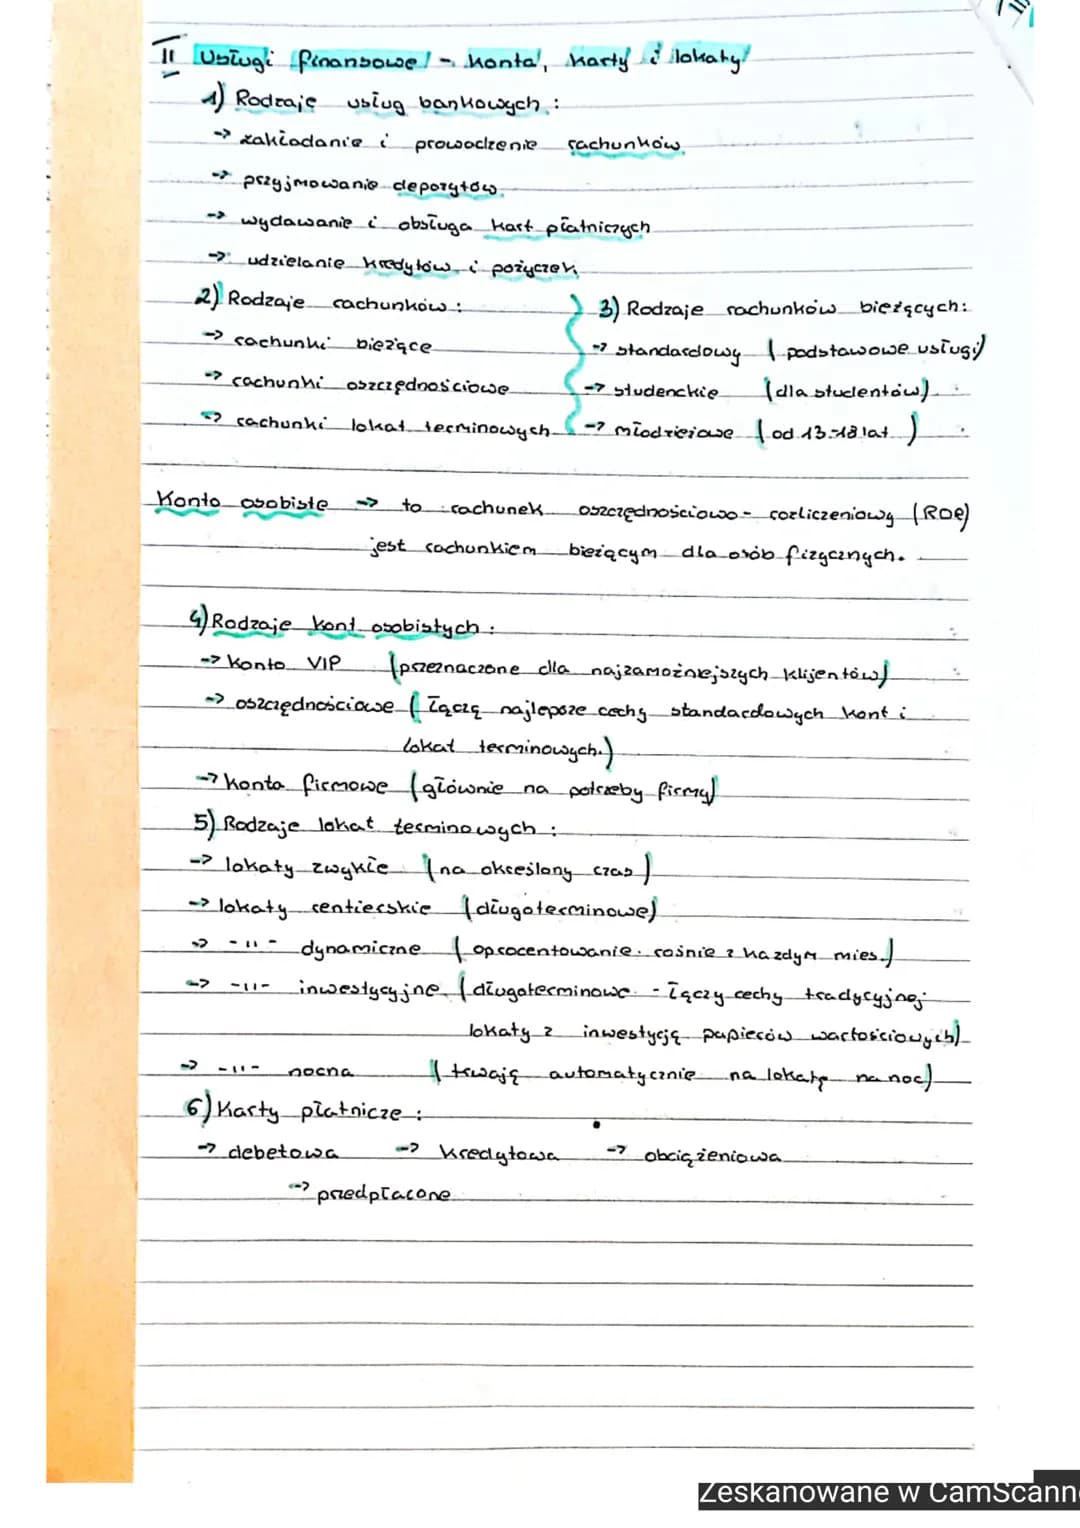 II Usługi finansowe - konta, karty i lokaty
1) Rodzaje usług bankowych :
-> zakładanie i prowadzenie rachunków
-> przyjmowanie depozytów
-> wydawanie i obsługa kart płatniczych
-> udzielanie kredytów i pożyczek
2) Rodzaje rachunków :
-> rachunki bieżące
-> rachunki oszczędnościowe
-> rachunki lokat terminowych
3) Rodzaje rachunków bieżących:
-> standardowy (podstawowe usługi)
-> studenckie (dla studentów)
-> młodzieżowe (od 13-18 lat)
Konto osobiste -> to rachunek oszczędnościowo - rozliczeniowy (ROR)
jest rachunkiem bieżącym dla osób fizycznych.
4) Rodzaje kont osobistych :
-> Konto VIP (przeznaczone dla najzamożniejszych klijentów)
-> oszczędnościowe (łączą najlepsze cechy standardowych kont i
lokat terminowych.)
-> konta firmowe (głównie na potrzeby firmy)
5) Rodzaje lokat terminowych :
-> lokaty zwykłe (na określony czas)
-> lokaty rentierskie (długoterminowe)
-> -11- dynamiczne (oprocentowanie rośnie z każdym mies.)
-> -11- inwestycyjne (długoterminowe - łączy cechy tradycyjnej
lokaty z inwestycją papierów wartościowych)
-> -11- nocna (trwają automatycznie na lokatę na noc)
6) Karty płatnicze :
-> debetowa -> kredytowa -> obciążeniowa
-> przedpłacone
Zeskanowane w CamScann